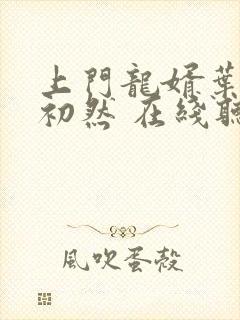 上門龍婿葉
初然 在綫聽
風吹蛋殼